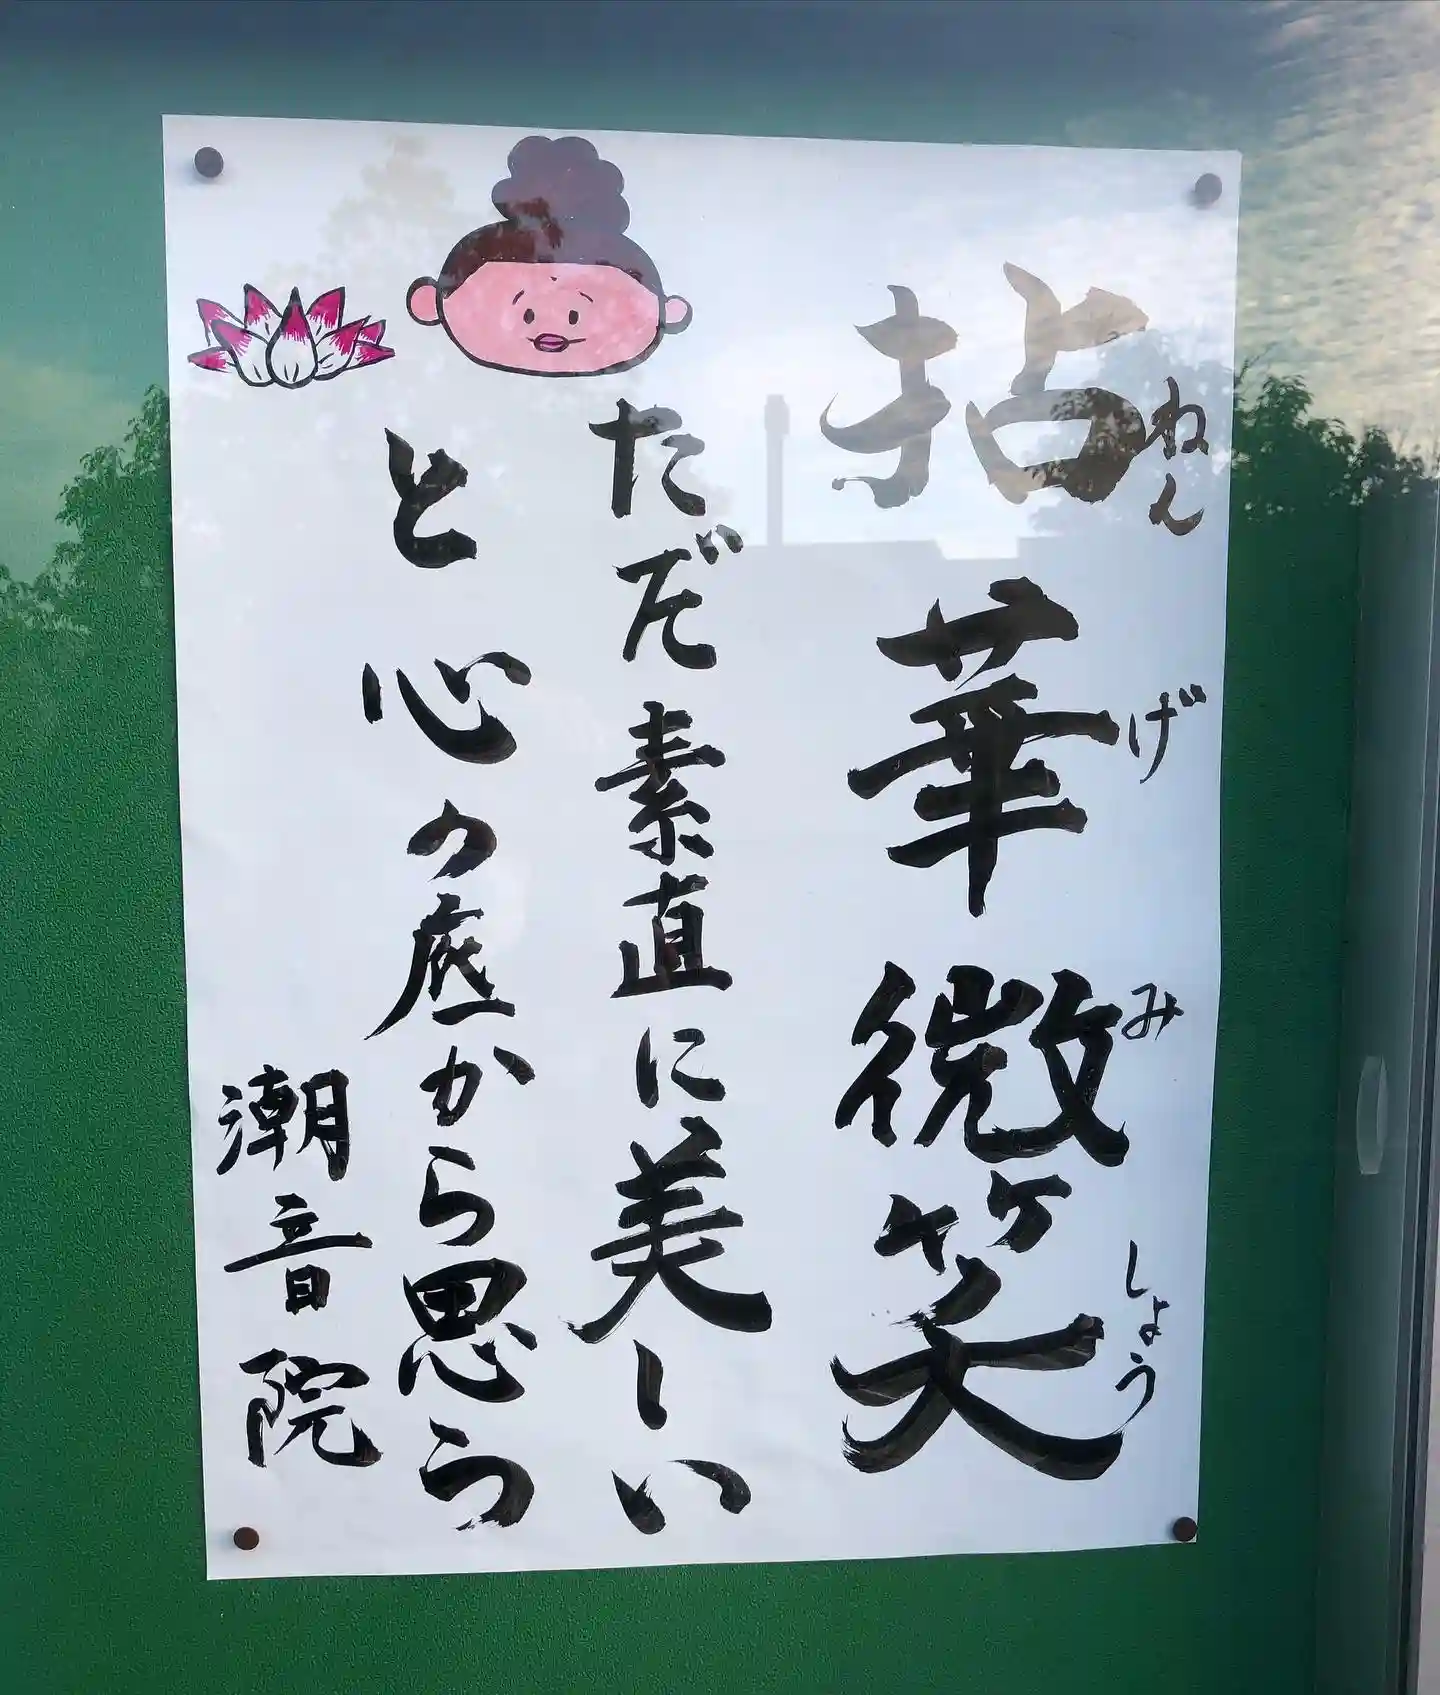 拈華微笑
ねんげみしょう
ただ素直に美しい
と心の庭から思う
潮音院